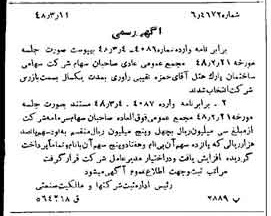 شماره ۶٫۴۶۷۲ ۱۱ر۳ر۴۸
آگهی رسمی
برابر نامه وارده نمره ۴۰۸۶ـ۴ر۳ر۴۸ بپیوست صورت جلسه
مورخه ۲۱ر۲ر۴۸ مجمع عمومی عادی صاحبان سهام شرکت سهامی
ساختمان پارک هتل آقای حمزه نقیبی راوری بمدت یکسال بسمت بازرس
شرکت انتخاب شدند
۲ ـ برابر نامه وارده ۴۰۸۷ ـ ۴ر۳ر۴۸ مستند بصورت جلسه
مورخه ۲۱ر۲ر۴۸ مجمع عمومی فوق‌العاده صاحبان سهام سرمایه شرکت
از مبلغ سی میلیون ریال بچهل و پنج میلیون ریال منقسم به نود سهم پانصد
هزار ریالی که پانزده سهم آن بی‌نام و هفتاد و پنج سهم آن با نام و تماما پرداخت
گردیده افزایش یافت و در اختیار مدیرعامل شرکت قرار گرفت
مراتب ثبت و جهت اطلاع عموم آگهی میشود
رئیس اداره ثبت شرکتها و مالکیت صنعتی
پ ۲۸۸۹ ق ۵۶۴۲۱۸